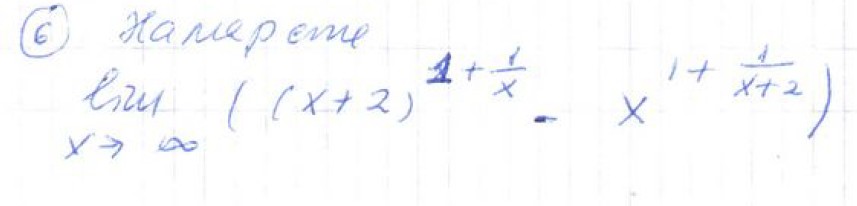 6 Намерете
lim x→∞ ((x+2)^{1+\frac{1}{x}} - x^{1+\frac{1}{x+2}})